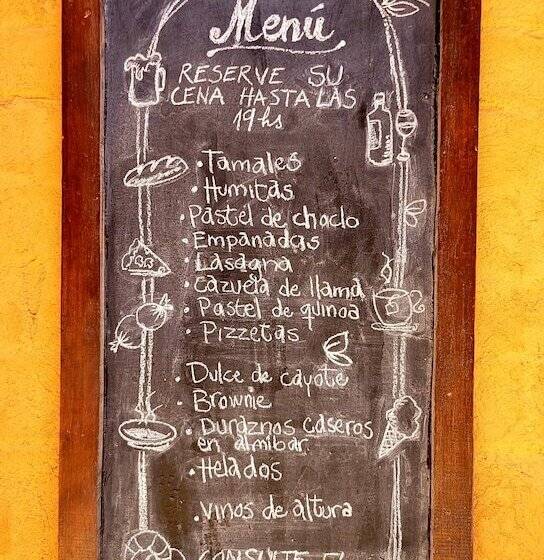 Menú
RESERVE SU
CENA HASTA LAS
19hs
• Tamales
• Humitas
• Pastel de choclo
• Empanadas
• Lasagna
• Cazuela de llama
• Pastel de quinoa
• Pizzetas
• Dulce de cayote
• Brownie
• Duraznos caseros
en almibar
• Helados
• Vinos de altura
CONSULTE EL